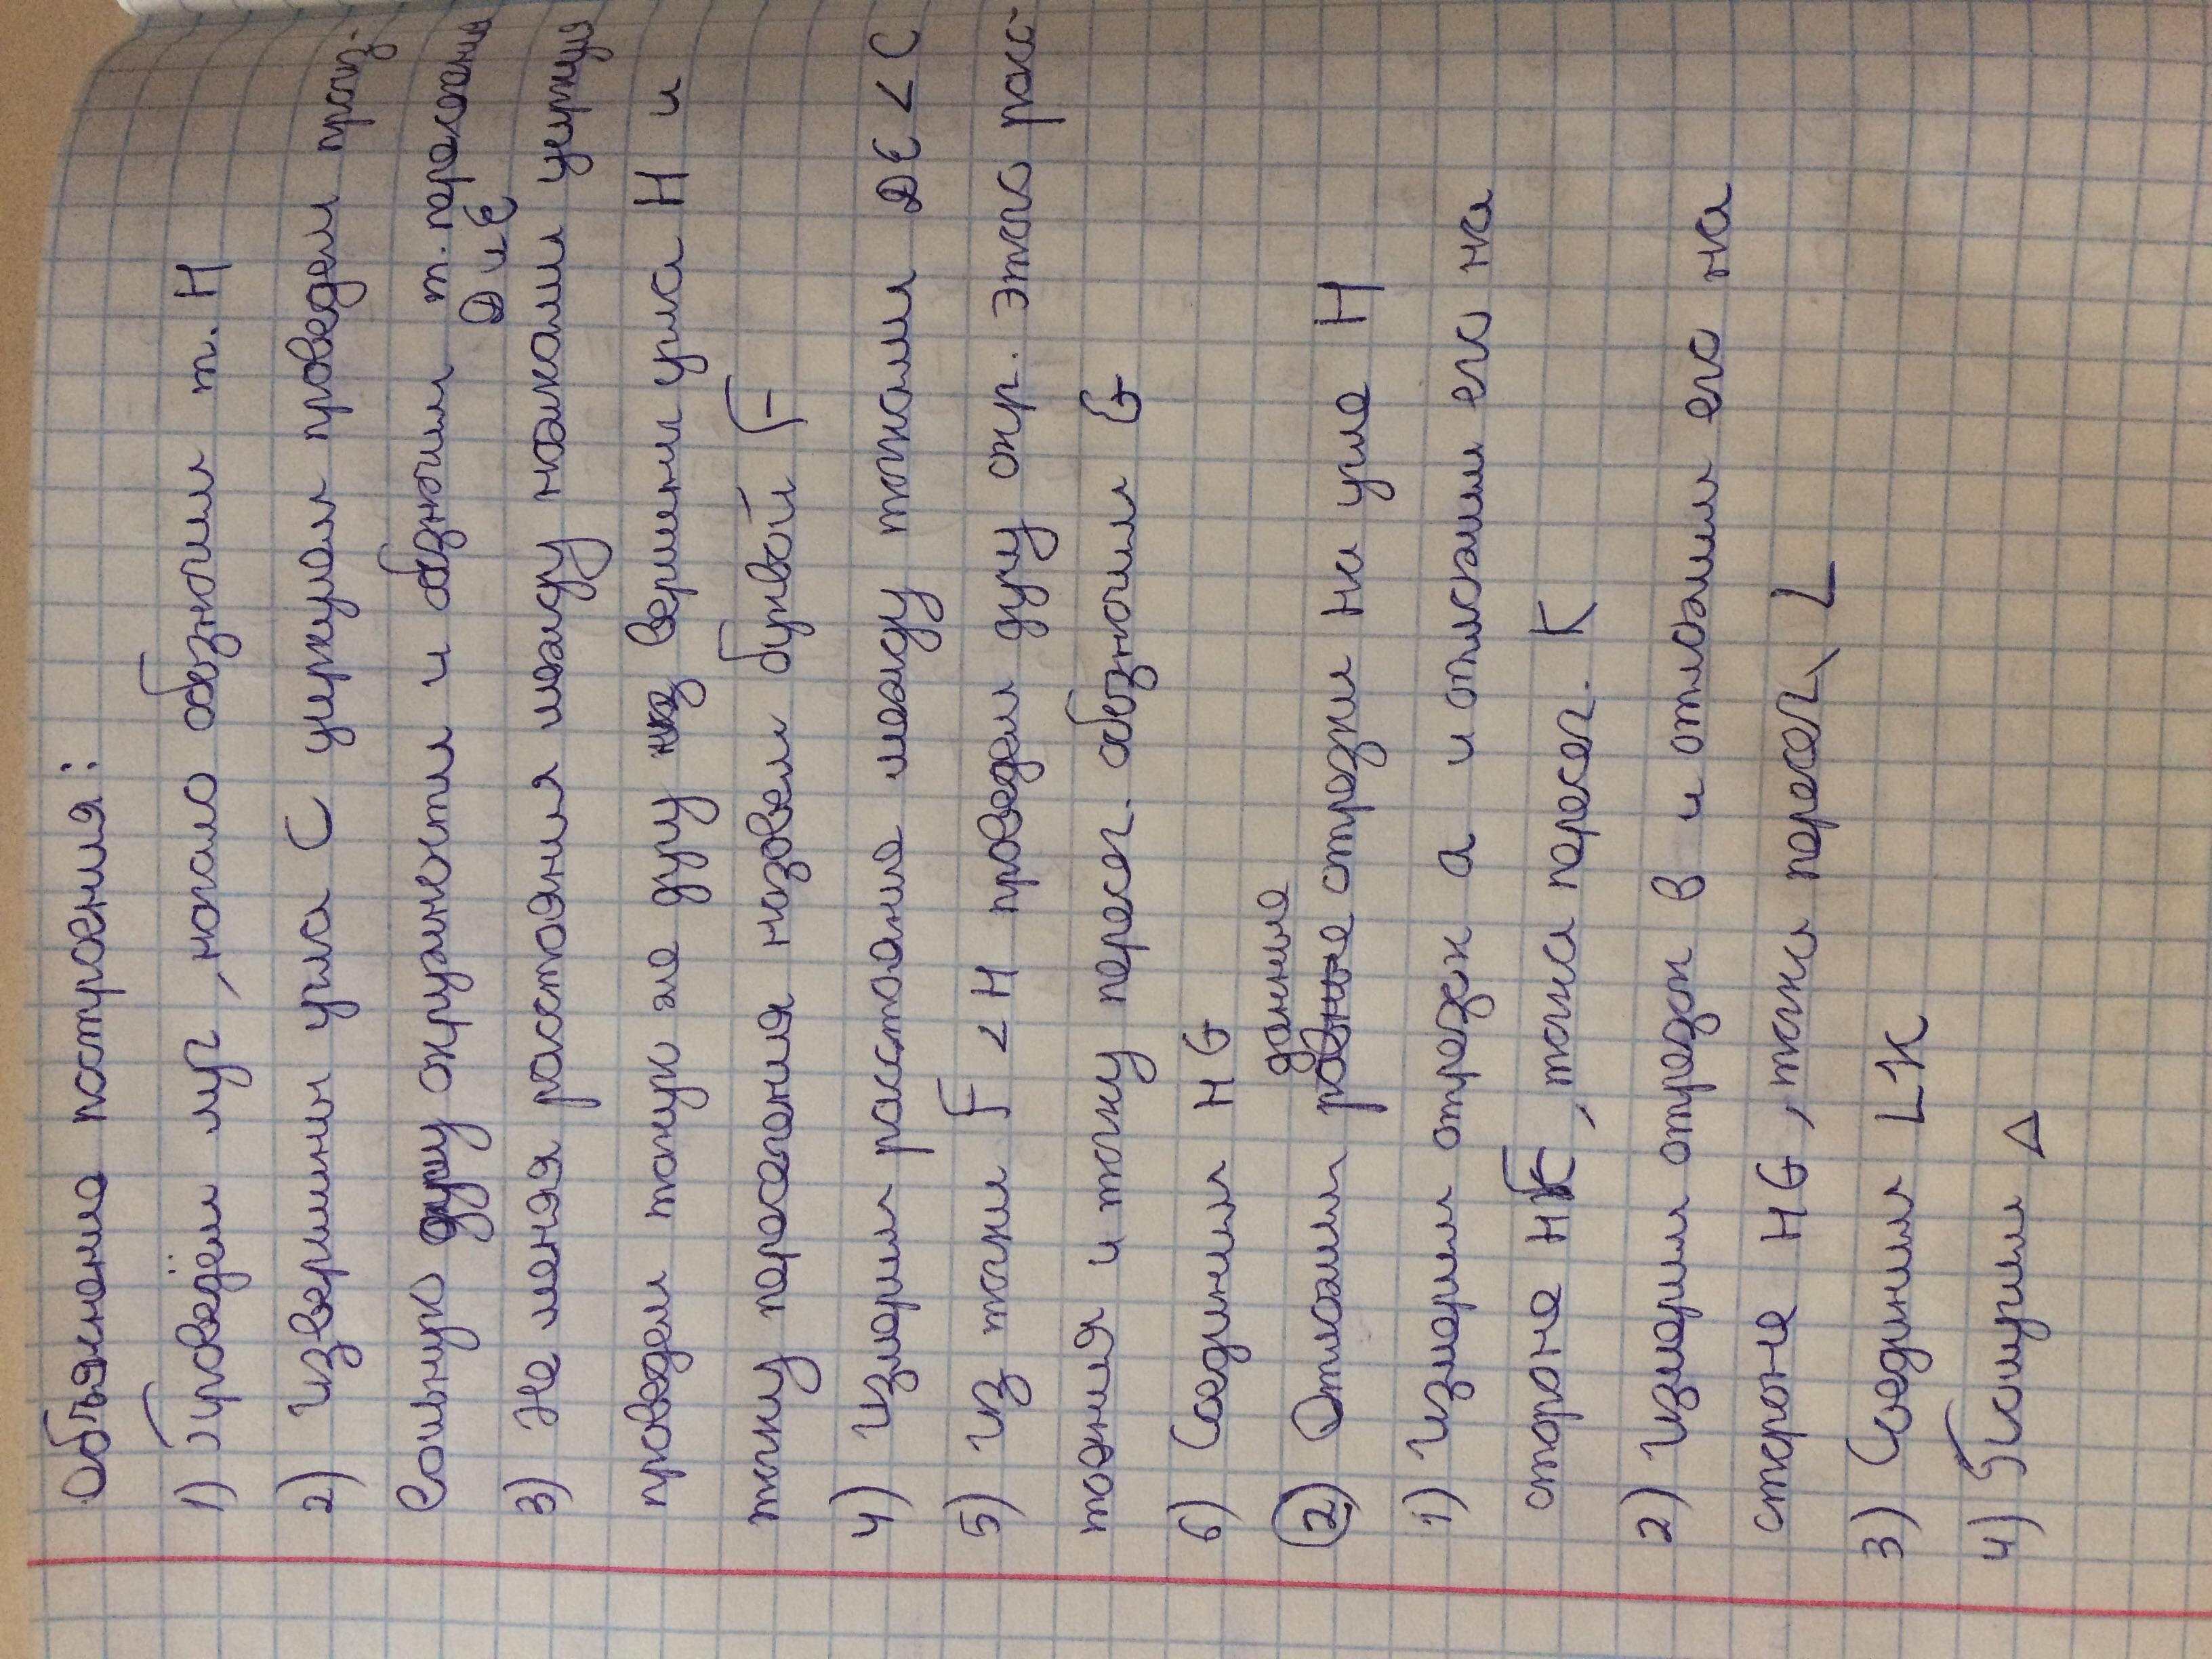 Объяснение построения:
1) Проведём луч, начало обозначим т. Н
2) Из вершины угла С циркулем проведем произ-
вольную дугу окружности и обозначим т. пересечения
D и E
3) Не меняя расстояния между ножками циркуля
проведем такую же дугу из вершины угла Н и
точку пересечения назовем буквой F
4) Измерим расстояние между точками DE ∠C
5) Из точки F ∠H проведем дугу окр. этого расс-
тояния и точку перес. обозначим G
6) Соединим HG
данные
2) Отложим равные отрезки на угле Н
1) Измерим отрезок а и отложим его на
стороне HF, точка пересеч. К
2) Измерим отрезок в и отложим его на
стороне HG, точка пересеч. L
3) Соединим LK
4) Получим Δ